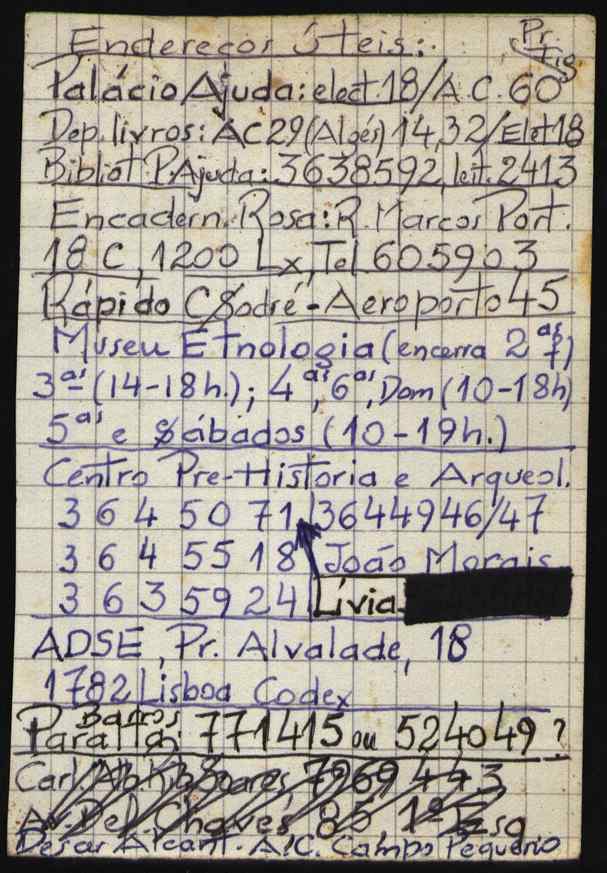 Endereços Úteis:
Pr.
Fig
Palácio Ajuda: elect.18/A.C. 60
Dep. livros: AC29(Algés) 14,32/Elet18
Bibliot. P.Ajuda: 3638592, leit. 2413
Encadern. Rosa: R. Marcos Port.
18 C, 1200 Lx, Tel 605903
Rápido C/Sodré - Aeroporto 45
Museu Etnologia (encerra 2ªs)
3ªs (14-18h.); 4ªs, 6ªs, Dom (10-18h)
5ªs e Sábados (10-19h.)
Centro Pre-Historia e Arqueol.
364 50 71, 3644946/47
364 55 18 João Morais
363 59 24 Lívia
ADSE, Pr. Alvalade, 18
1782 Lisboa Codex
Barros
771415 ou 524049?
Carl. Soares 7969443
Av. Del. Chaves 85, 1º Esq
Alcant. A.C. Campo Pequeno